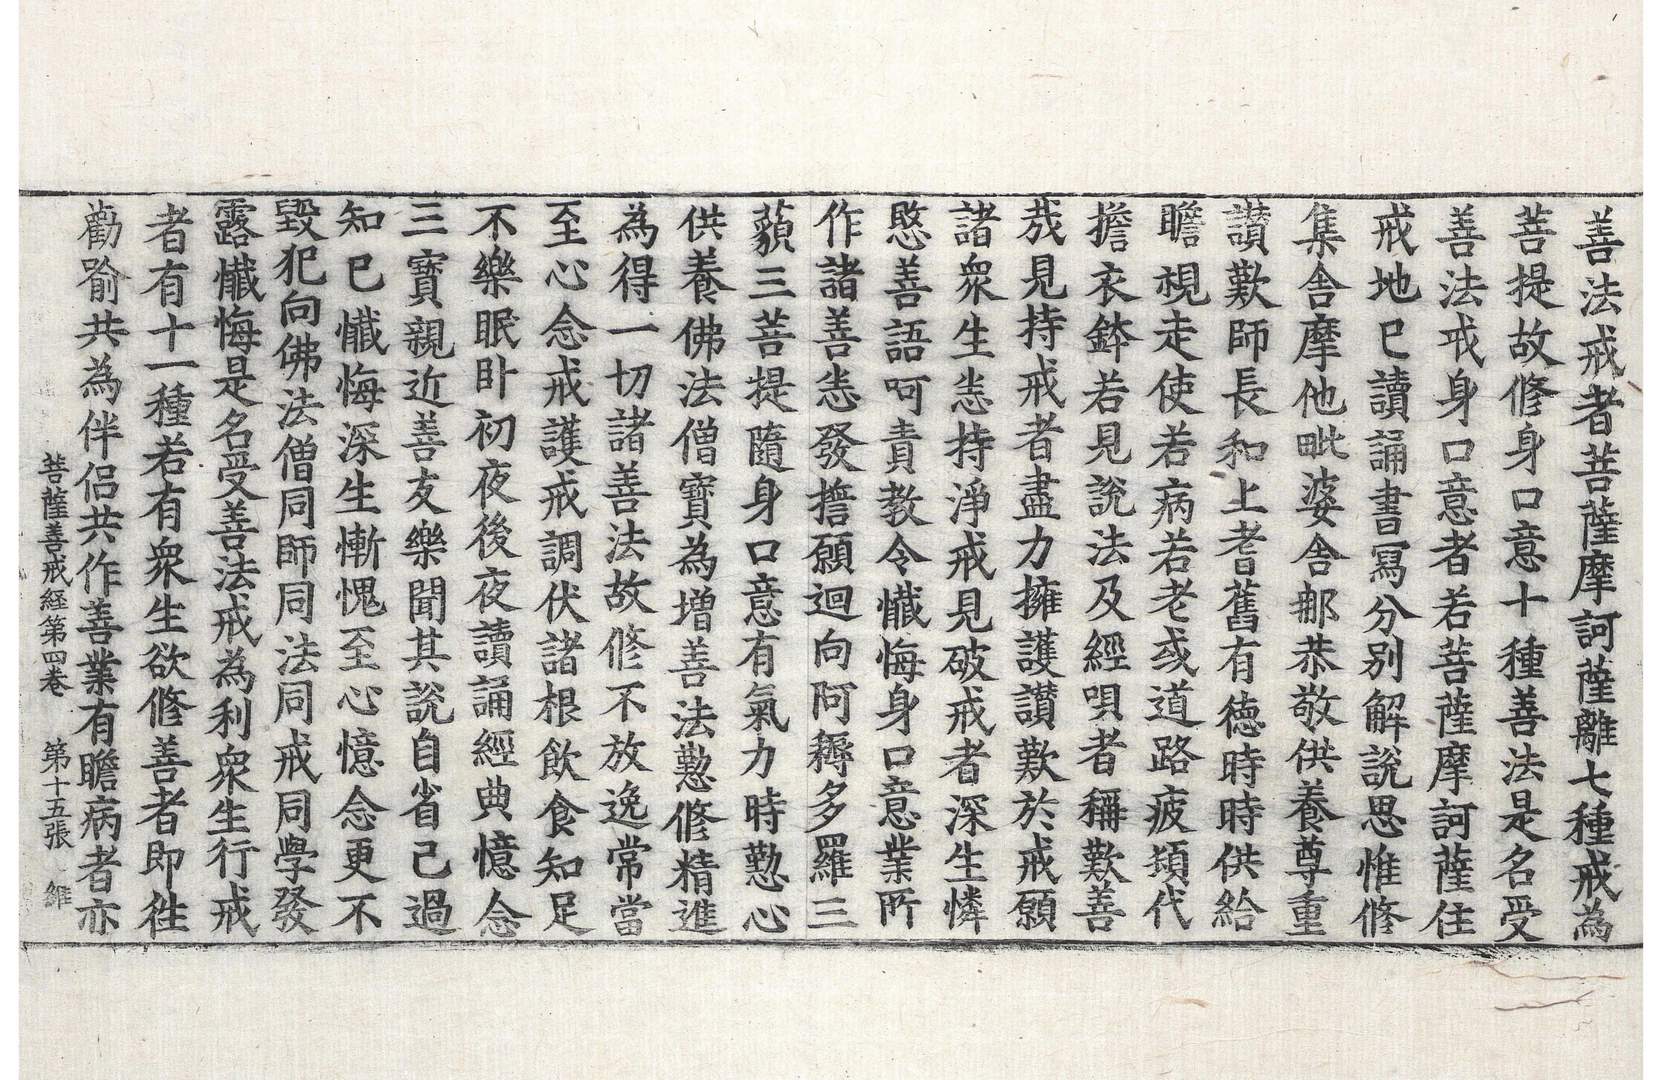 善法戒者菩薩摩訶薩離七種戒為
菩提故修身口意十種善法是名受
善法戒身口意者若菩薩摩訶薩住
戒地已讀誦書寫分別解說思惟修
集舍摩他毗婆舍那恭敬供養尊重
讃歎師長和上耆舊有德時時供給
瞻視走使若病若老或道路疲頓代
擔衣鉢若見說法及經唄者稱歎善
哉見持戒者盡力擁護讃歎於戒願
諸衆生恙持淨戒見破戒者深生憐
愍善語呵責教令懺悔身口意業所
作諸善恙發擔願迴向阿耨多羅三
藐三菩提隨身口意有氣力時懃心
供養佛法僧寶為增善法懃修精進
為得一切諸善法故修不放逸常當
至心念戒護戒調伏諸根飲食知足
不樂眠卧初夜後夜讀誦經典憶念
三寳親近善友樂聞其說自省己過
知已懺悔深生慚愧至心憶念更不
毀犯向佛法僧同師同法同戒同學發
露懺悔是名受善法戒為利衆生行戒
者有十一種若有衆生欲修善者即徃
勸喻共為伴侣共作善業有瞻病者亦
菩薩善戒経第四卷 第十五張 維